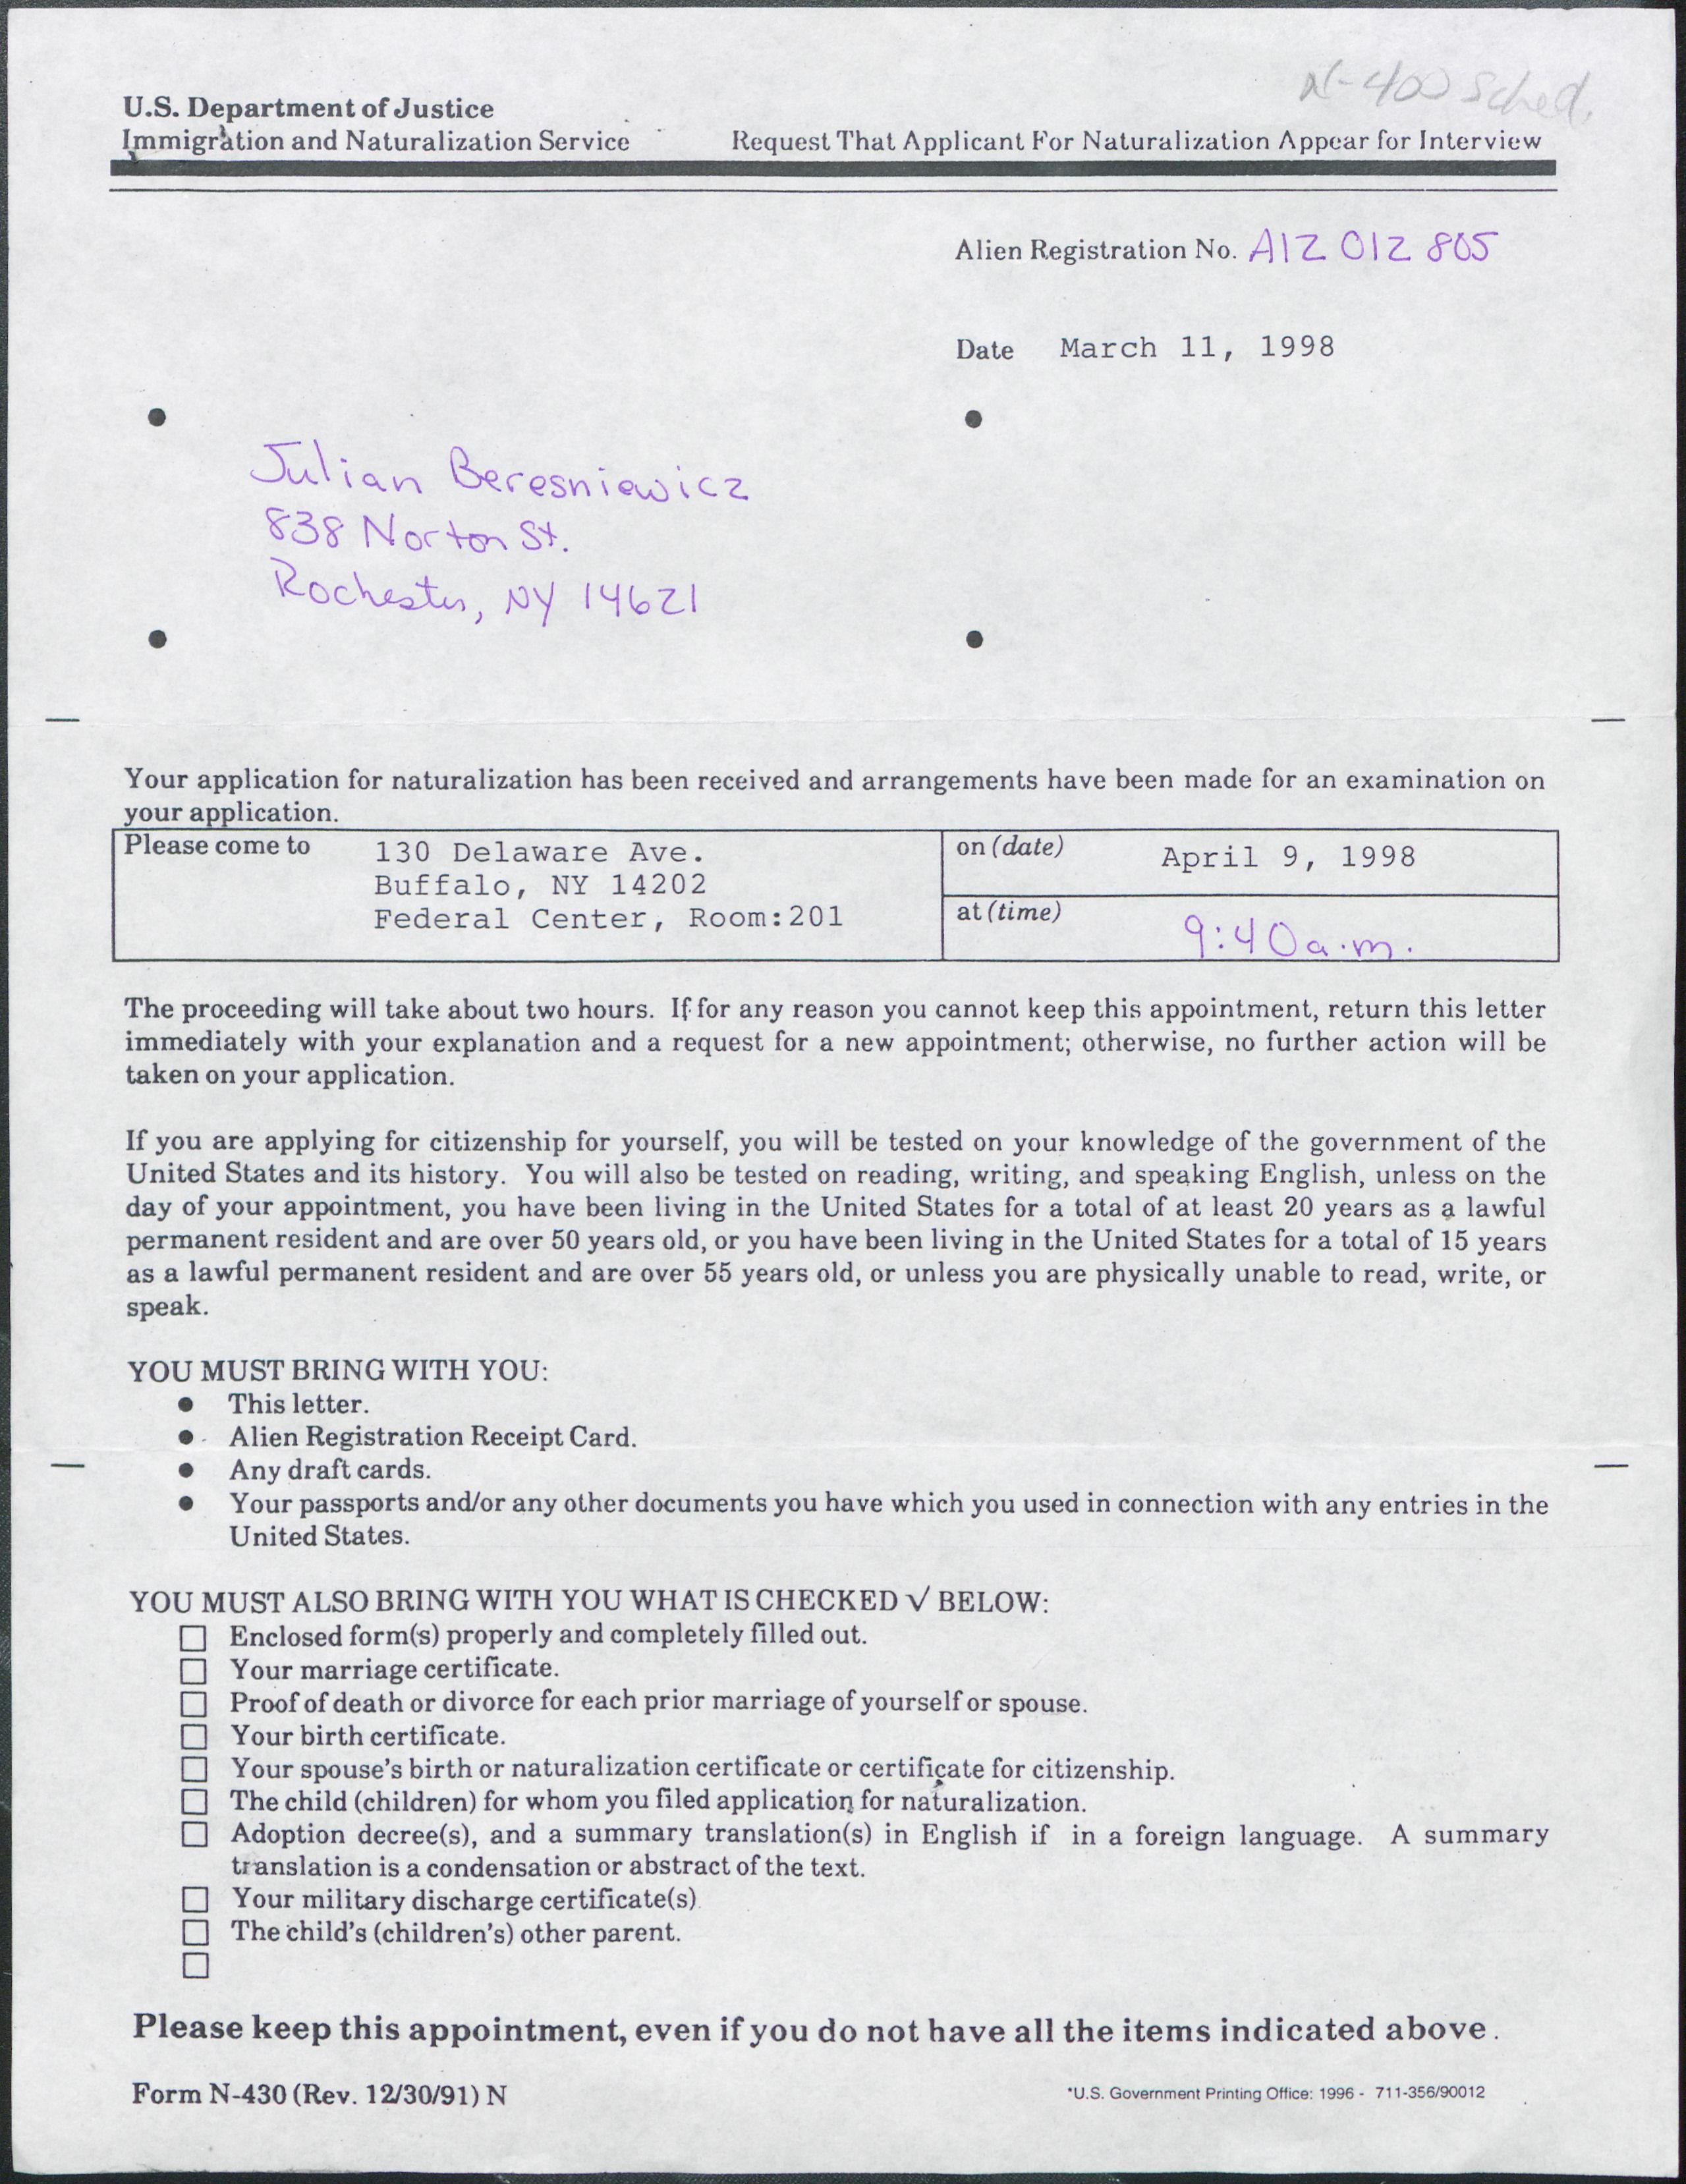 N-400 Sched.
U.S. Department of Justice
Immigration and Naturalization Service Request That Applicant For Naturalization Appear for Interview
Alien Registration No. A12 012 805
Date March 11, 1998
Julian Beresniewicz
838 Norton St.
Rochester, NY 14621
Your application for naturalization has been received and arrangements have been made for an examination on
your application.
Please come to 130 Delaware Ave.
Buffalo, NY 14202
Federal Center, Room:201
on (date) April 9, 1998
at (time) 9:40 a.m.
The proceeding will take about two hours. If for any reason you cannot keep this appointment, return this letter
immediately with your explanation and a request for a new appointment; otherwise, no further action will be
taken on your application.
If you are applying for citizenship for yourself, you will be tested on your knowledge of the government of the
United States and its history. You will also be tested on reading, writing, and speaking English, unless on the
day of your appointment, you have been living in the United States for a total of at least 20 years as a lawful
permanent resident and are over 50 years old, or you have been living in the United States for a total of 15 years
as a lawful permanent resident and are over 55 years old, or unless you are physically unable to read, write, or
speak.
YOU MUST BRING WITH YOU:
● This letter.
● Alien Registration Receipt Card.
● Any draft cards.
● Your passports and/or any other documents you have which you used in connection with any entries in the
United States.
YOU MUST ALSO BRING WITH YOU WHAT IS CHECKED √ BELOW:
☐ Enclosed form(s) properly and completely filled out.
☐ Your marriage certificate.
☐ Proof of death or divorce for each prior marriage of yourself or spouse.
☐ Your birth certificate.
☐ Your spouse's birth or naturalization certificate or certificate for citizenship.
☐ The child (children) for whom you filed application for naturalization.
☐ Adoption decree(s), and a summary translation(s) in English if in a foreign language. A summary
translation is a condensation or abstract of the text.
☐ Your military discharge certificate(s).
☐ The child's (children's) other parent.
☐
Please keep this appointment, even if you do not have all the items indicated above.
Form N-430 (Rev. 12/30/91) N *U.S. Government Printing Office: 1996 - 711-356/90012